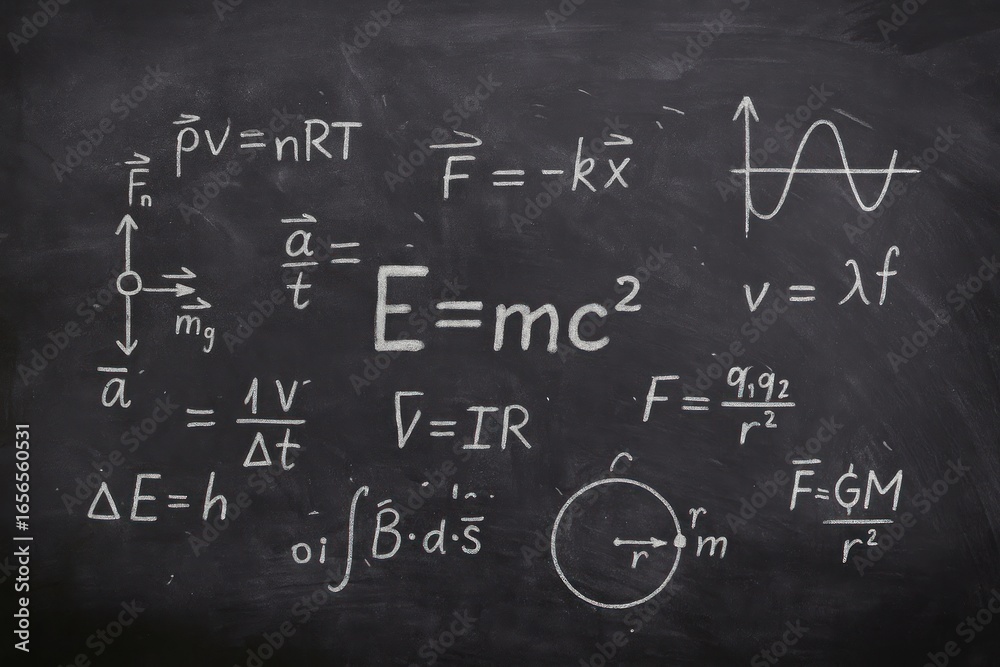 p⃗v = nRT
F⃗ = -kx⃗
F⃗n
a⃗/t =
m⃗g
a̅
E=mc²
v = λf
= 1V/Δt
V̅=IR
F = q₁q₂/r²
ΔE=h
∫B·d·s̅
r
m
r
F̅=GM/r²
Adobe Stock | #1656560531